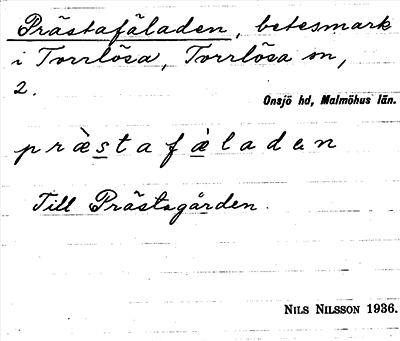 Prästafäladen, betesmark
i Torrlösa, Torrlösa sn,
2.
Onsjö hd, Malmöhus län.
præ̀stafæ̀laden
Till Prästgården.
NILS NILSSON 1936.